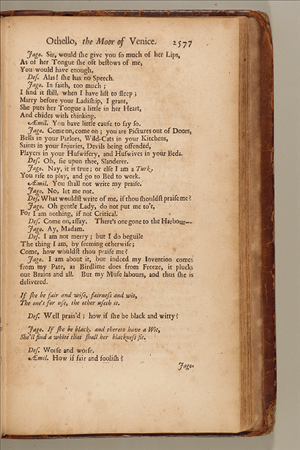 Othello, the Moor of Venice. 2577
Jago. Sir, would she give you so much of her Lips,
As of her Tongue she oft bestows of me,
You would have enough.
Des. Alas! she has no Speech.
Jago. In faith, too much;
I find it still, when I have list to sleep;
Marry before your Ladiship, I grant,
She puts her Tongue a little in her Heart,
And chides with thinking.
Æmil. You have little cause to say so.
Jago. Come on, come on; you are Pictures out of Doors,
Bells in your Parlors, Wild-Cats in your Kitchens,
Saints in your Injuries, Devils being offended,
Players in your Huswifery, and Huswives in your Beds.
Des. Oh, fie upon thee, Slanderer.
Jago. Nay, it is true; or else I am a Turk,
You rise to play, and go to Bed to work.
Æmil. You shall not write my praise.
Jago. No, let me not.
Des. What wouldst write of me, if thou shouldst praise me?
Jago. Oh gentle Lady, do not put me to't,
For I am nothing, if not Critical.
Des. Come on, assay. There's one gone to the Harbour—
Jago. Ay, Madam.
Des. I am not merry; but I do beguile
The thing I am, by seeming otherwise;
Come, how wouldst thou praise me?
Jago. I am about it, but indeed my Invention comes
from my Pate, as Birdlime does from Freeze, it plucks
out Brains and all. But my Muse labours, and thus she is
delivered.
If she be fair and wise, fairness and wit,
The one's for use, the other useth it.
Des. Well prais'd; how if she be black and witty?
Jago. If she be black, and thereto have a Wit,
She'll find a white that shall her blackness fit.
Des. Worse and worse.
Æmil. How if fair and foolish?
Jago.